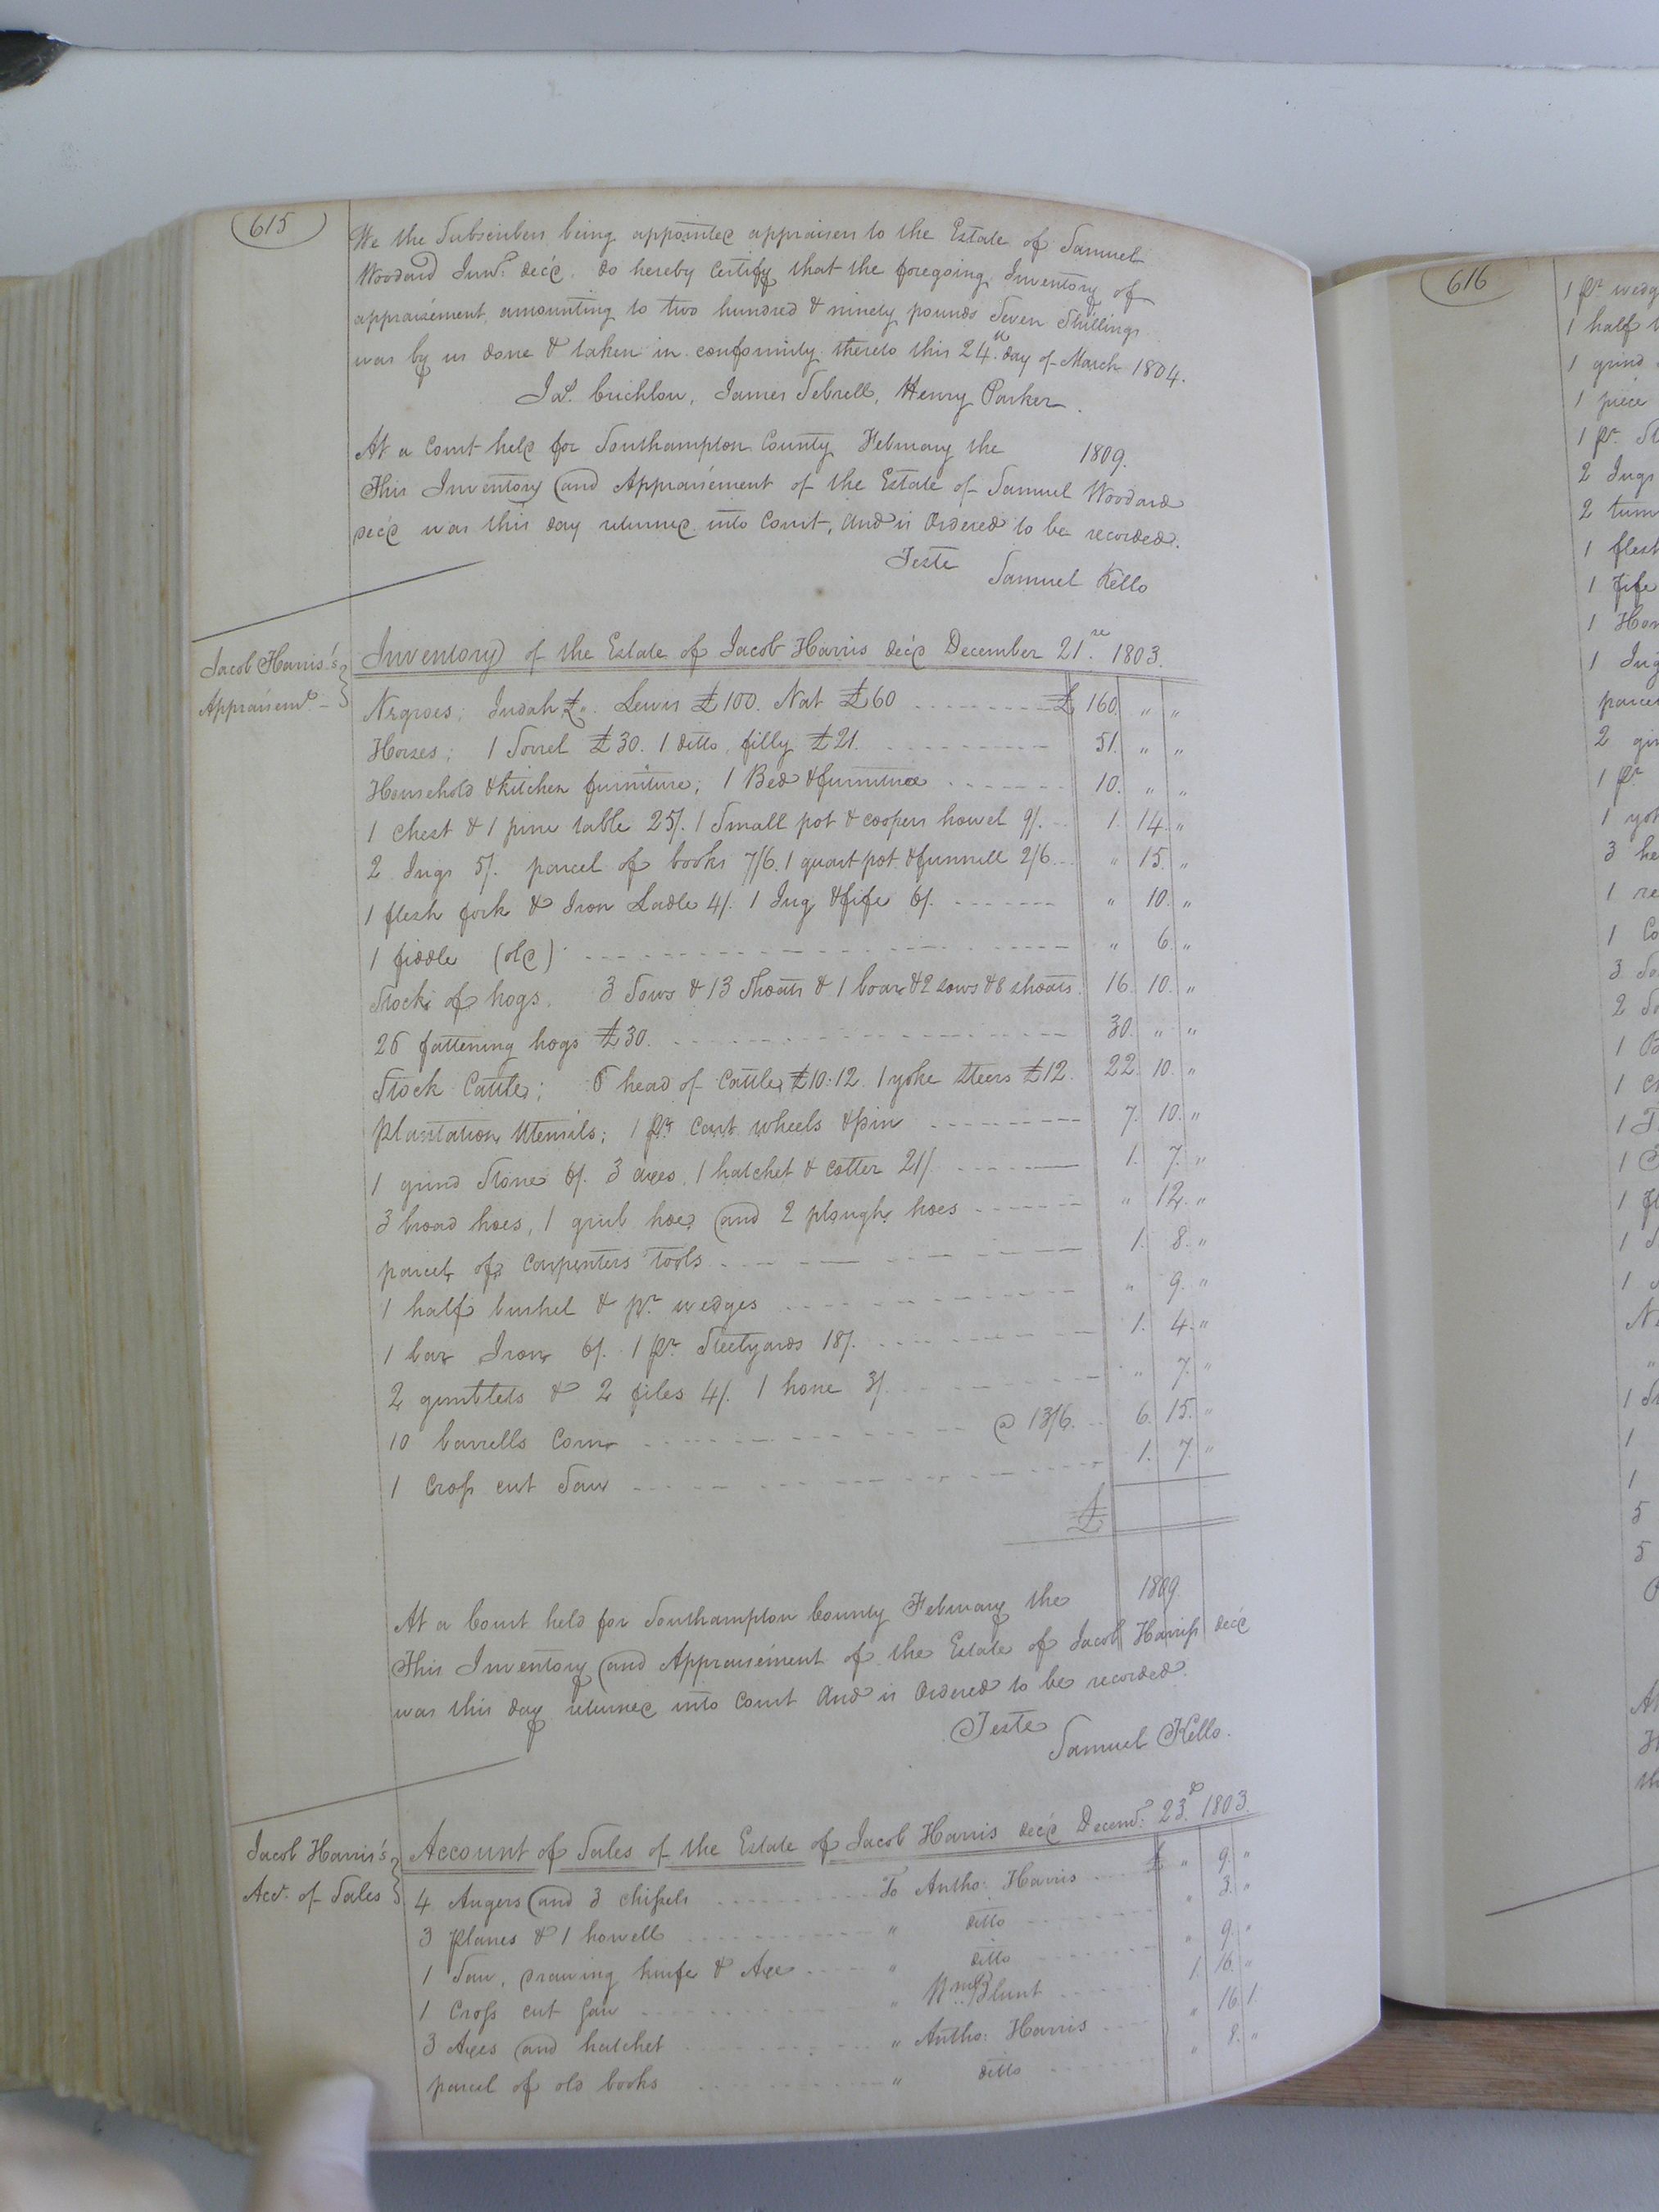 615
We the Subscribers being appointed appraisers to the Estate of Samuel
Woodard Junr. dec'd. do hereby Certify that the foregoing Inventory of
appraisement amounting to two hundred & ninety pounds Seven Shillings
was by us done & taken in conformity thereto this 24th day of March 1804.
Crichlow, James Sebrell, Henry Parker.
At a Court held for Southampton County February the 1809.
This Inventory and Appraisement of the Estate of Samuel Woodard
dec'd was this day returned into Court, and is Ordered to be recorded.
Teste
Samuel Kello
Jacob Harris's
Appraisemt.
Inventory of the Estate of Jacob Harris dec'd December 21st. 1803.
Negroes; Judah £ ". Lewis £100. Nat £60 £ 160. " "
Horses; 1 Sorrel £30. 1 ditto, filly £21. 51. " "
Household & kitchen furniture; 1 Bed & furniture 10. " "
1 chest & 1 pine table 25/. 1 Small pot & coopers howel 9/. 1. 14. "
2 Jugs 5/. parcel of books 7/6. 1 quart pot & funnell 2/6 " 15. "
1 flesh fork & Iron Ladle 4/. 1 Jug & fife 6/. " 10. "
1 fiddle (old) " 6. "
Stock of hogs. 3 Sows & 13 Shoats & 1 boar & 2 sows & 8 shoats. 16. 10. "
26 fattening hogs £30. 30. " "
Stock Cattle; 6 head of Cattle £10:12. 1 yoke Steers £12. 22. 10. "
Plantation Utensils; 1 pr. Cart wheels & pin 7. 10. "
1 grind Stone 6/. 3 axes, 1 hatchet & cotter 21/. 1. 7. "
3 broad hoes, 1 grub hoe and 2 plough hoes " 12. "
parcel of Carpenters Tools 1. 8. "
1 half bushel & pr. wedges " 9. "
1 bar Iron 6/. 1 pr. Steelyards 18/. 1. 4. "
2 gimblets & 2 files 4/. 1 hone 3/. " 7. "
10 barrells Corn @ 13/6. 6. 15. "
1 Cross cut Saw 1. 7. "
£
At a Court held for Southampton County February the 1809.
This Inventory and Appraisement of the Estate of Jacob Harriss dec'd
was this day returned into Court And is Ordered to be recorded.
Teste
Samuel Kello.
Jacob Harris's
Acct. of Sales
Account of Sales of the Estate of Jacob Harris dec'd Decemr. 23d. 1803.
4 Augers and 3 chissels To Antho: Harris £ " 9. "
3 Planes & 1 howell " ditto " 3. "
1 Saw, drawing knife & Axe " ditto " 9. "
1 Cross cut Saw " Wm. Blunt 1. 16. "
3 Axes and hatchet " Antho: Harris " 16. 1.
parcel of old books " ditto " 8. "
616
1 pr. wedg
1 half
1 grind
1 piece
1 pr. St
2 Jugs
2 tum
1 flesh
1 fife
1 Hon
1 Jug
parcel
2 gi
1 pr
1 yok
3 he